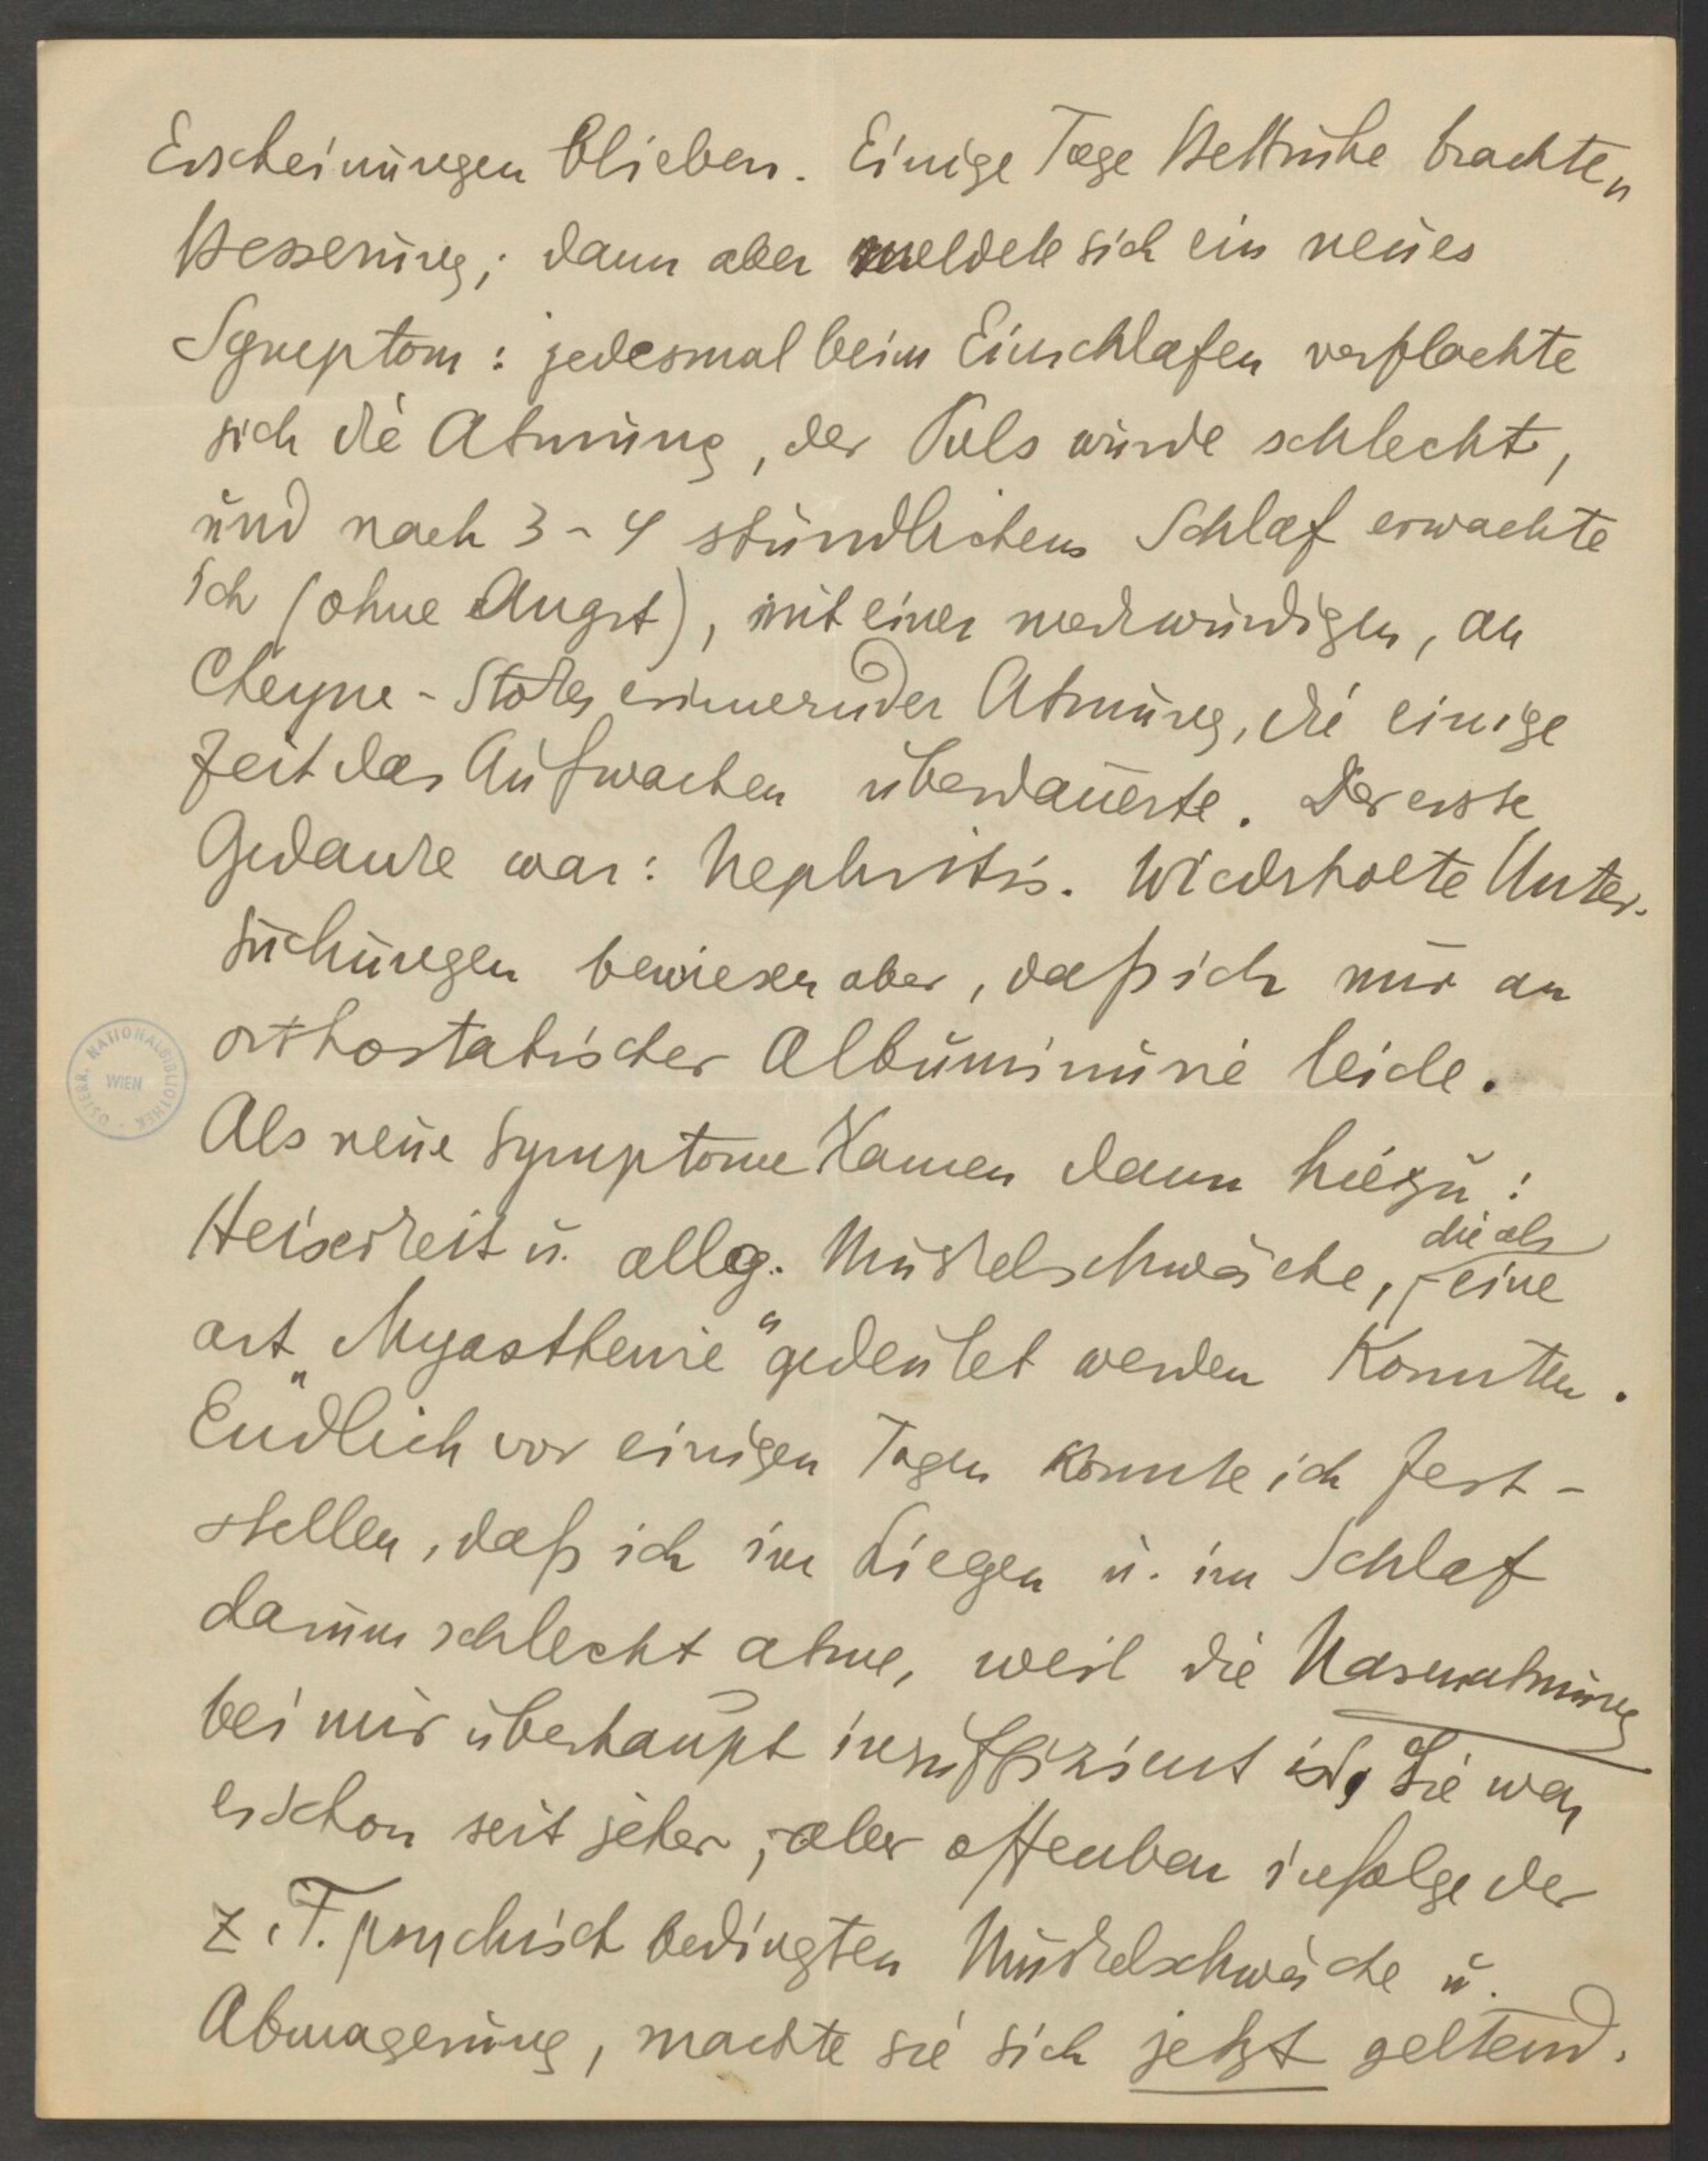 Erscheinungen blieben. Einige Tage Bettruhe brachten
Besserung; dann aber meldete sich ein neues
Symptom: jedesmal beim Einschlafen verflachte
sich die Atmung, der Puls wurde schlecht,
und nach 3-4 stündlichem Schlaf erwachte
ich (ohne Angst), mit einer merkwürdigen, an
Cheyne-Stokes erinnernder Atmung, die einige
Zeit das Aufwachen überdauerte. Der erste
Gedanke war: Nephritis. Wiederholte Unter-
suchungen bewiesen aber, daß ich nur an
orthostatischer Albuminurie leide.
Als neue Symptome kamen dann hiezu:
die als
Heiserkeit u. allg. Muskelschwäche, eine
art „Myasthenie“ gedeutet werden konnten.
Endlich vor einigen Tagen konnte ich fest-
stellen, daß ich im Liegen u. im Schlaf
darum schlecht atme, weil die Nasenatmung
bei mir überhaupt insuffizient ist, Sie war
es schon seit jeher, aber offenbar infolge der
z. T. psychisch bedingten Muskelschwäche u.
Abmagerung, machte sie sich jetzt geltend.
ÖSTERR. NATIONALBIBLIOTHEK
WIEN